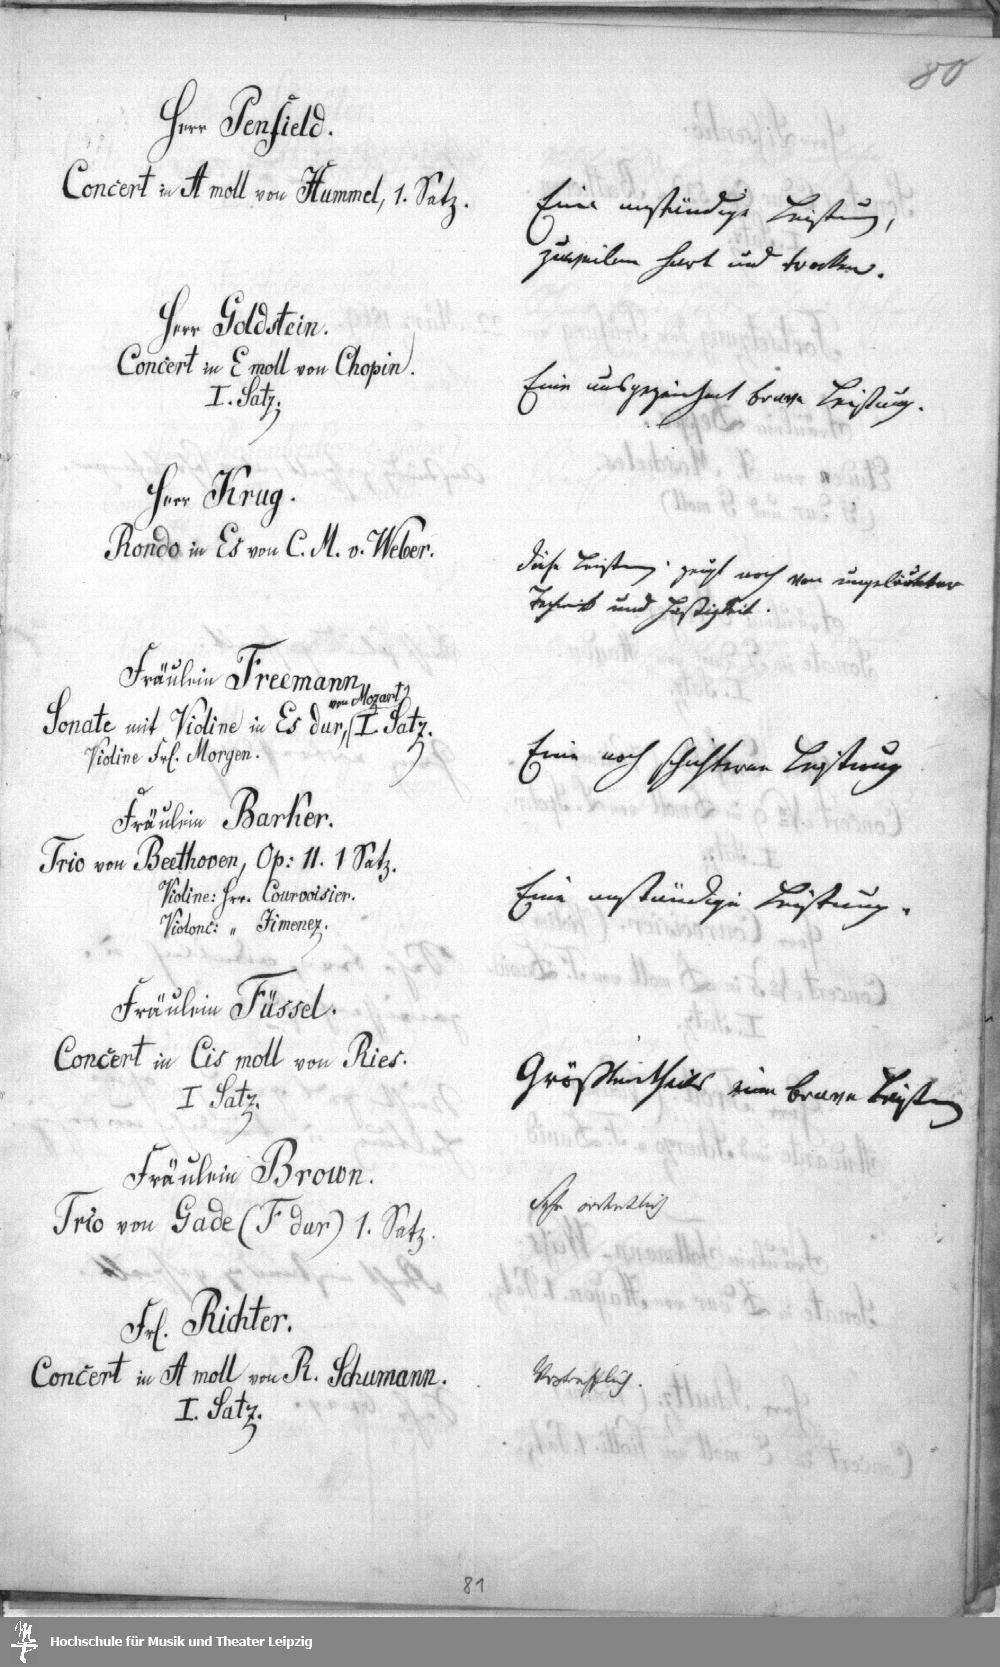 80
Herr Penfield.
Concert in A moll von Hummel, 1. Satz.
Eine anständige Leistung,
zuweilen hart und trocken.
Herr Goldstein.
Concert in E moll von Chopin.
I. Satz.
Eine ausgezeichnet brave Leistung.
Herr Krug.
Rondo in Es von C. M. v. Weber.
Diese Leistung zeugt noch von
Technik und Hastigkeit.
Fräulein Freemann
von Mozart
Sonate mit Violine in Es dur, I. Satz.
Violine Frl. Morgen.
Eine noch schüchterne Leistung
Fräulein Barker.
Trio von Beethoven, Op: 11. 1 Satz.
Violine: Hrr. Courvoisier.
Violonc: " Jimenez.
Eine anständige Leistung.
Fräulein Füssel.
Concert in Cis moll von Ries.
I Satz.
Größtentheils eine brave Leistung
Fräulein Brown.
Trio von Gade (F dur) 1. Satz.
Sehr ordentlich
Frl. Richter.
Concert in A moll von R. Schumann.
I. Satz.
Vortrefflich.
81
Hochschule für Musik und Theater Leipzig